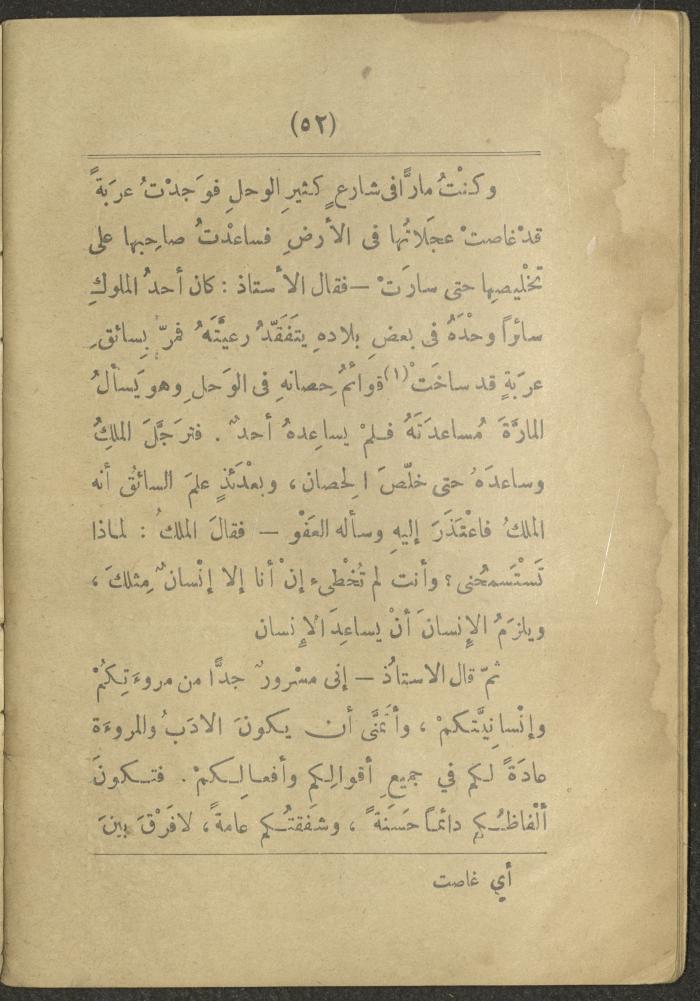 (٥٢)
وكنْتُ مارًّا فى شارعٍ كثيرِ الوحلِ فوَجدْتُ عربَةً
قدْ غاصتْ عجَلاتُها فى الأرضِ فساعدْتُ صاحِبها على
تخْليصِها حتى سارَتْ — فقال الأستاذ : كان أحدُ الملوكِ
سائراً وحْدَهُ فى بعضِ بلادهِ يتَفَقّدُ رعيَّتَهُ فمرّ بِسائقِ
عرَبَةٍ قد ساخَتْ (١) قوائمُ حِصانهِ فى الوَحلِ وهو يَسألُ
المارَّةَ مُساعدَتَهُ فلمْ يساعِدهُ أحدٌ . فترَجَّلَ الملِكُ
وساعدَهُ حتى خلّصَ الحصان ، وبعْدَئذٍ علمَ السائقُ أنه
الملكُ فاعْتَذَرَ إليهِ وسأله العَفْو — فقالَ الملكُ : لماذا
تَسْتَسمحُنى ؟ وأنت لم تُخْطىء إنْ أنا إلا إنْسانٌ مِثلكَ ،
ويلزَمُ الإنسانَ أنْ يساعِدَ الإنسان
ثمّ قال الاستاذُ — إنى مسْرورٌ جدًّا من مروءَتِكمْ
وإنْسانِيَّتكمْ ، وأتمنَّى أن يكونَ الادَبُ والمروءَة
عادَةً لكم في جميعِ أقوالِكم وأفعالِكمْ . فتكونَ
ألْفاظُكم دائماً حَسَنةً ، وشفقتُكم عامةً ، لافَرْقَ بينَ
أي غاصت